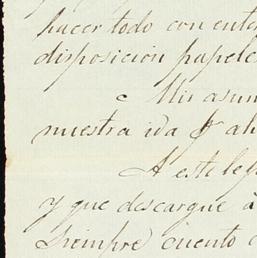 hacer todo con ente
disposición papele
Mis asun
nuestra ida pr ah
A este le
y que descargue á
siempre cuento c